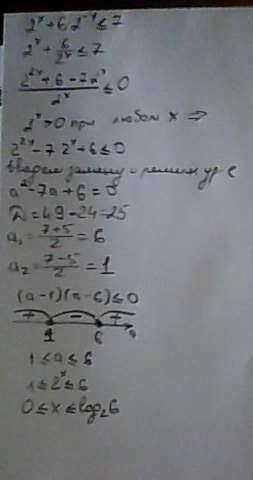 2^x + 6·2^-x ≤ 7
2^x + 6/2^x ≤ 7
(2^2x + 6 - 7·2^x)/2^x ≤ 0
2^x > 0 при любом x ⇒
2^2x - 7·2^x + 6 ≤ 0
вводим замену и решим ур-е
a² - 7a + 6 = 0
D = 49 - 24 = 25
a₁ = (7+5)/2 = 6
a₂ = (7-5)/2 = 1
(a-1)(a-6) ≤ 0
+ - +
1 6 a
1 ≤ a ≤ 6
1 ≤ 2^x ≤ 6
0 ≤ x ≤ log₂6